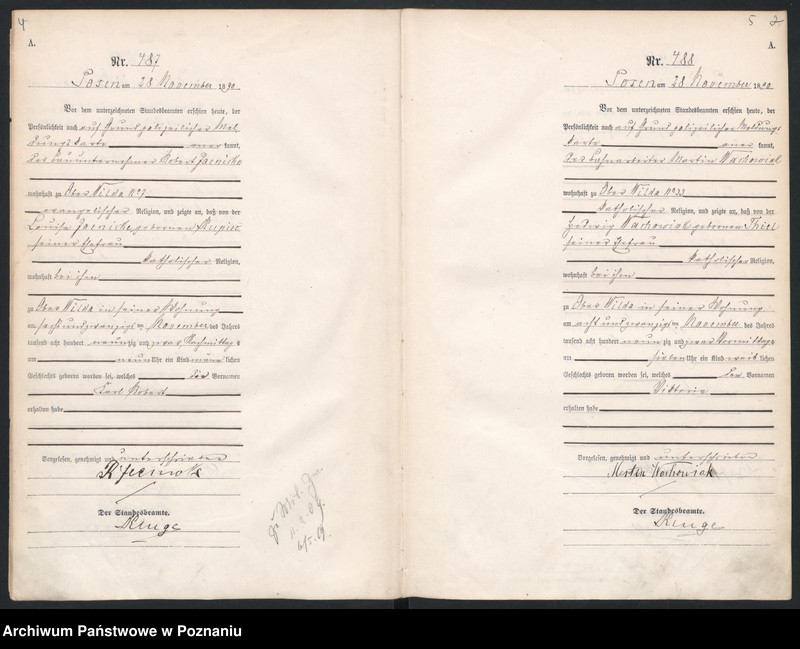 4
A.
Nr. 487
Posen am 28 November 1890
Vor dem unterzeichneten Standesbeamten erschien heute, der
Persönlichkeit nach auf Grund polizeilicher Mel
dungskarte anerkannt,
der Bauunternehmer Robert Jaenicke
wohnhaft zu Ober Wilda No 7
evangelischer Religion, und zeigte an, daß von der
Louise Jaenicke geborenen
seiner Ehefrau
katholischer Religion,
wohnhaft bei ihm
zu Ober Wilda in seiner Wohnung
am sechsundzwanzigsten November des Jahres
tausend acht hundert neunzig und zwar Nachmittags
um neun Uhr ein Kind männlichen
Geschlechts geboren worden sei, welches die Vornamen
Karl Robert
erhalten habe
Vorgelesen, genehmigt und unterschrieben
R Jaenicke
Der Standesbeamte.
5 2
A.
Nr. 488
Posen am 28 November 1890
Vor dem unterzeichneten Standesbeamten erschien heute, der
Persönlichkeit nach auf Grund polizeilicher Meldungs
karte anerkannt,
der Bahnarbeiter Martin Wachowiak
wohnhaft zu Ober Wilda No 33
katholischer Religion, und zeigte an, daß von der
Hedwig Wachowiak geborenen Thiel
seiner Ehefrau
katholischer Religion,
wohnhaft bei ihm
zu Ober Wilda in seiner Wohnung
am acht und zwanzigsten November des Jahres
tausend acht hundert neunzig und zwar Vormittags
um sieben Uhr ein Kind weiblichen
Geschlechts geboren worden sei, welches den Vornamen
Viktoria
erhalten habe
Vorgelesen, genehmigt und unterschrieben
Martin Wachowiak
Der Standesbeamte.
Archiwum Państwowe w Poznaniu